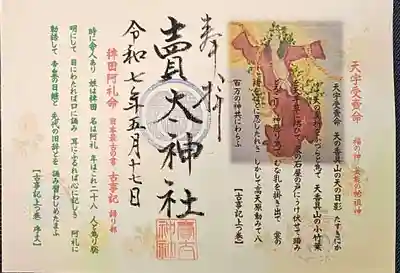 天宇受賣命 福の神 芸能の始祖神
天宇受賣命 天の香具山の天の日影を たすきにか
天の香具山の小竹葉
天の石屋の戸に うけ伏せて 踏み
胸乳を掛き出で 裳の
しかして 高天原動みて 八
百万の神共にわらふ 【古事記上つ巻】
奉拝
賣太神社
令和七年五月十七日
稗田阿礼命 日本最古の書 古事記 語り部
時に舎人あり 姓は稗田 名は阿礼 年はこれ二十八 人と為り聡
明にして 目にわたれば口に誦み 耳にふるれば心に記しき 阿礼に
勅語して 帝皇の日継と 先代の旧辞とを 誦み習わしめたまふ
【古事記上つ巻 序文】